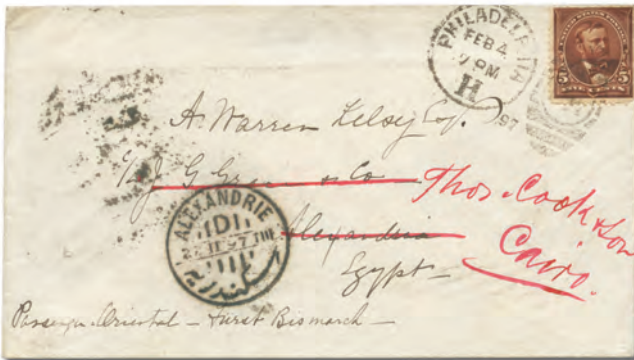 PHILADELPHIA
FEB 4
7 PM
H
97
5 5
A. Warren Kelsey Esq.
c/o J G & Co
Thos. Cook & Son
Alexandria
Cairo.
Egypt
ALEXANDRIE
97
Passenger Oriental — Furst Bismarck —